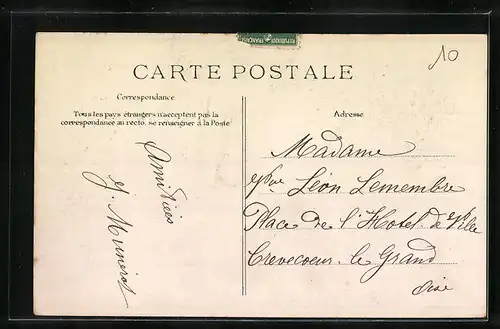 RÉPUBLIQUE FRANÇAISE
10
CARTE POSTALE
Correspondance
Tous les pays étrangers n'acceptent pas la
correspondance au recto, se renseigner à la Poste
Adresse
Amitiés
Madame
Vve Léon Lemembre
Place de l'Hotel de Ville
Crevecoeur le Grand
Oise